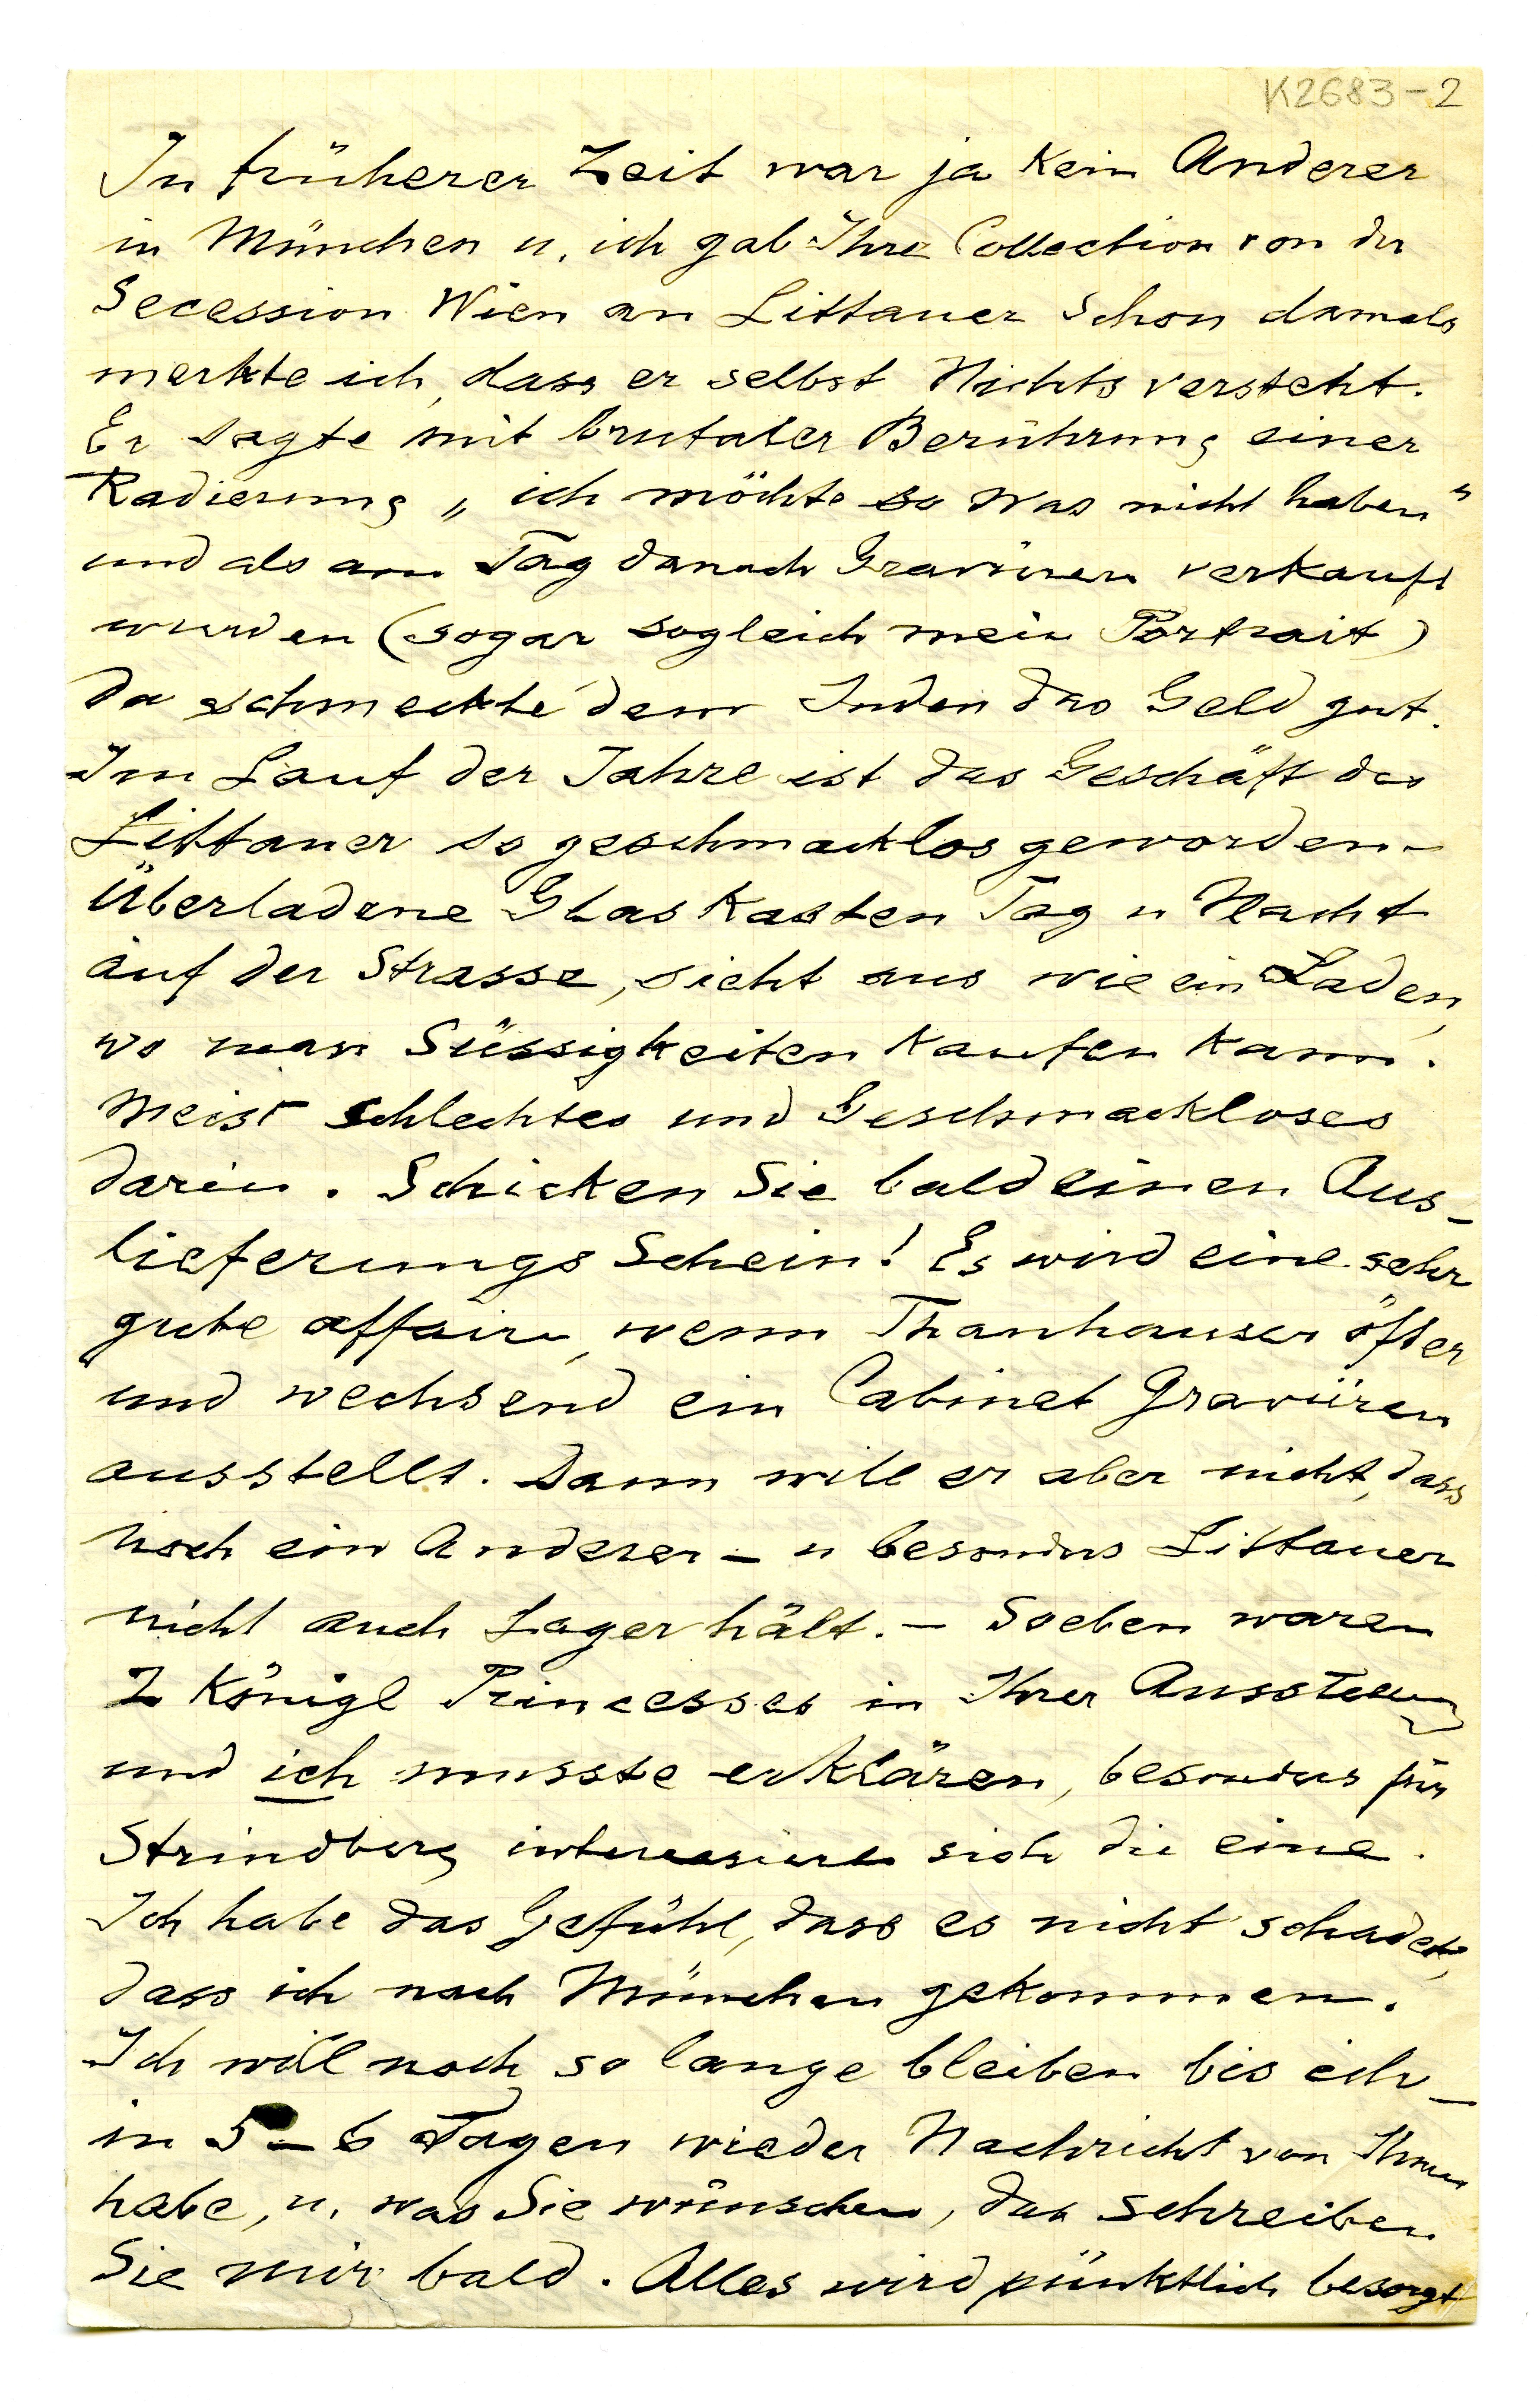 K2683-2
In früherer Zeit war ja kein Anderer
in München u. ich gab Ihre Collection von der
Secession Wien an Littauer schon damals
merkte ich, dass er selbst Nichts versteht.
Er sagte mit brutaler Berührung einer
Radierung „ich möchte so was nicht haben"
und als am Tag danach Gravüren verkauft
wurden (sogar sogleich mein Portrait)
da schmeckte dem Juden das Geld gut.
Im Lauf der Jahre ist das Geschäft des
Littauer so geschmacklos geworden –
überladene Glaskasten Tag u Nacht
auf der Strasse, sieht aus wie ein Laden,
wo man Süssigkeiten kaufen kann.
Meist schlechtes und Geschmackloses
darin. Schicken Sie bald einen Aus-
lieferungs Schein! Es wird eine sehr
gute affaire, wenn Thanhauser öfter
und wechsend ein Cabinet Gravüren
ausstellt. Dann will er aber nicht, dass
noch ein Anderer – u besonders Littauer
nicht auch Lager hält. – Soeben waren
2 Königl Princesses in Ihrer Ausstellung
und ich musste erklären, besonders für
Strindberg interessiere sich die eine.
Ich habe das Gefühl, dass es nicht schadet,
dass ich nach München gekommen.
Ich will noch so lange bleiben bis ich –
in 5–6 Tagen wieder Nachricht von Ihnen
habe, u. was Sie wünschen, das schreiben
Sie mir bald. Alles wird pünktlich besorgt